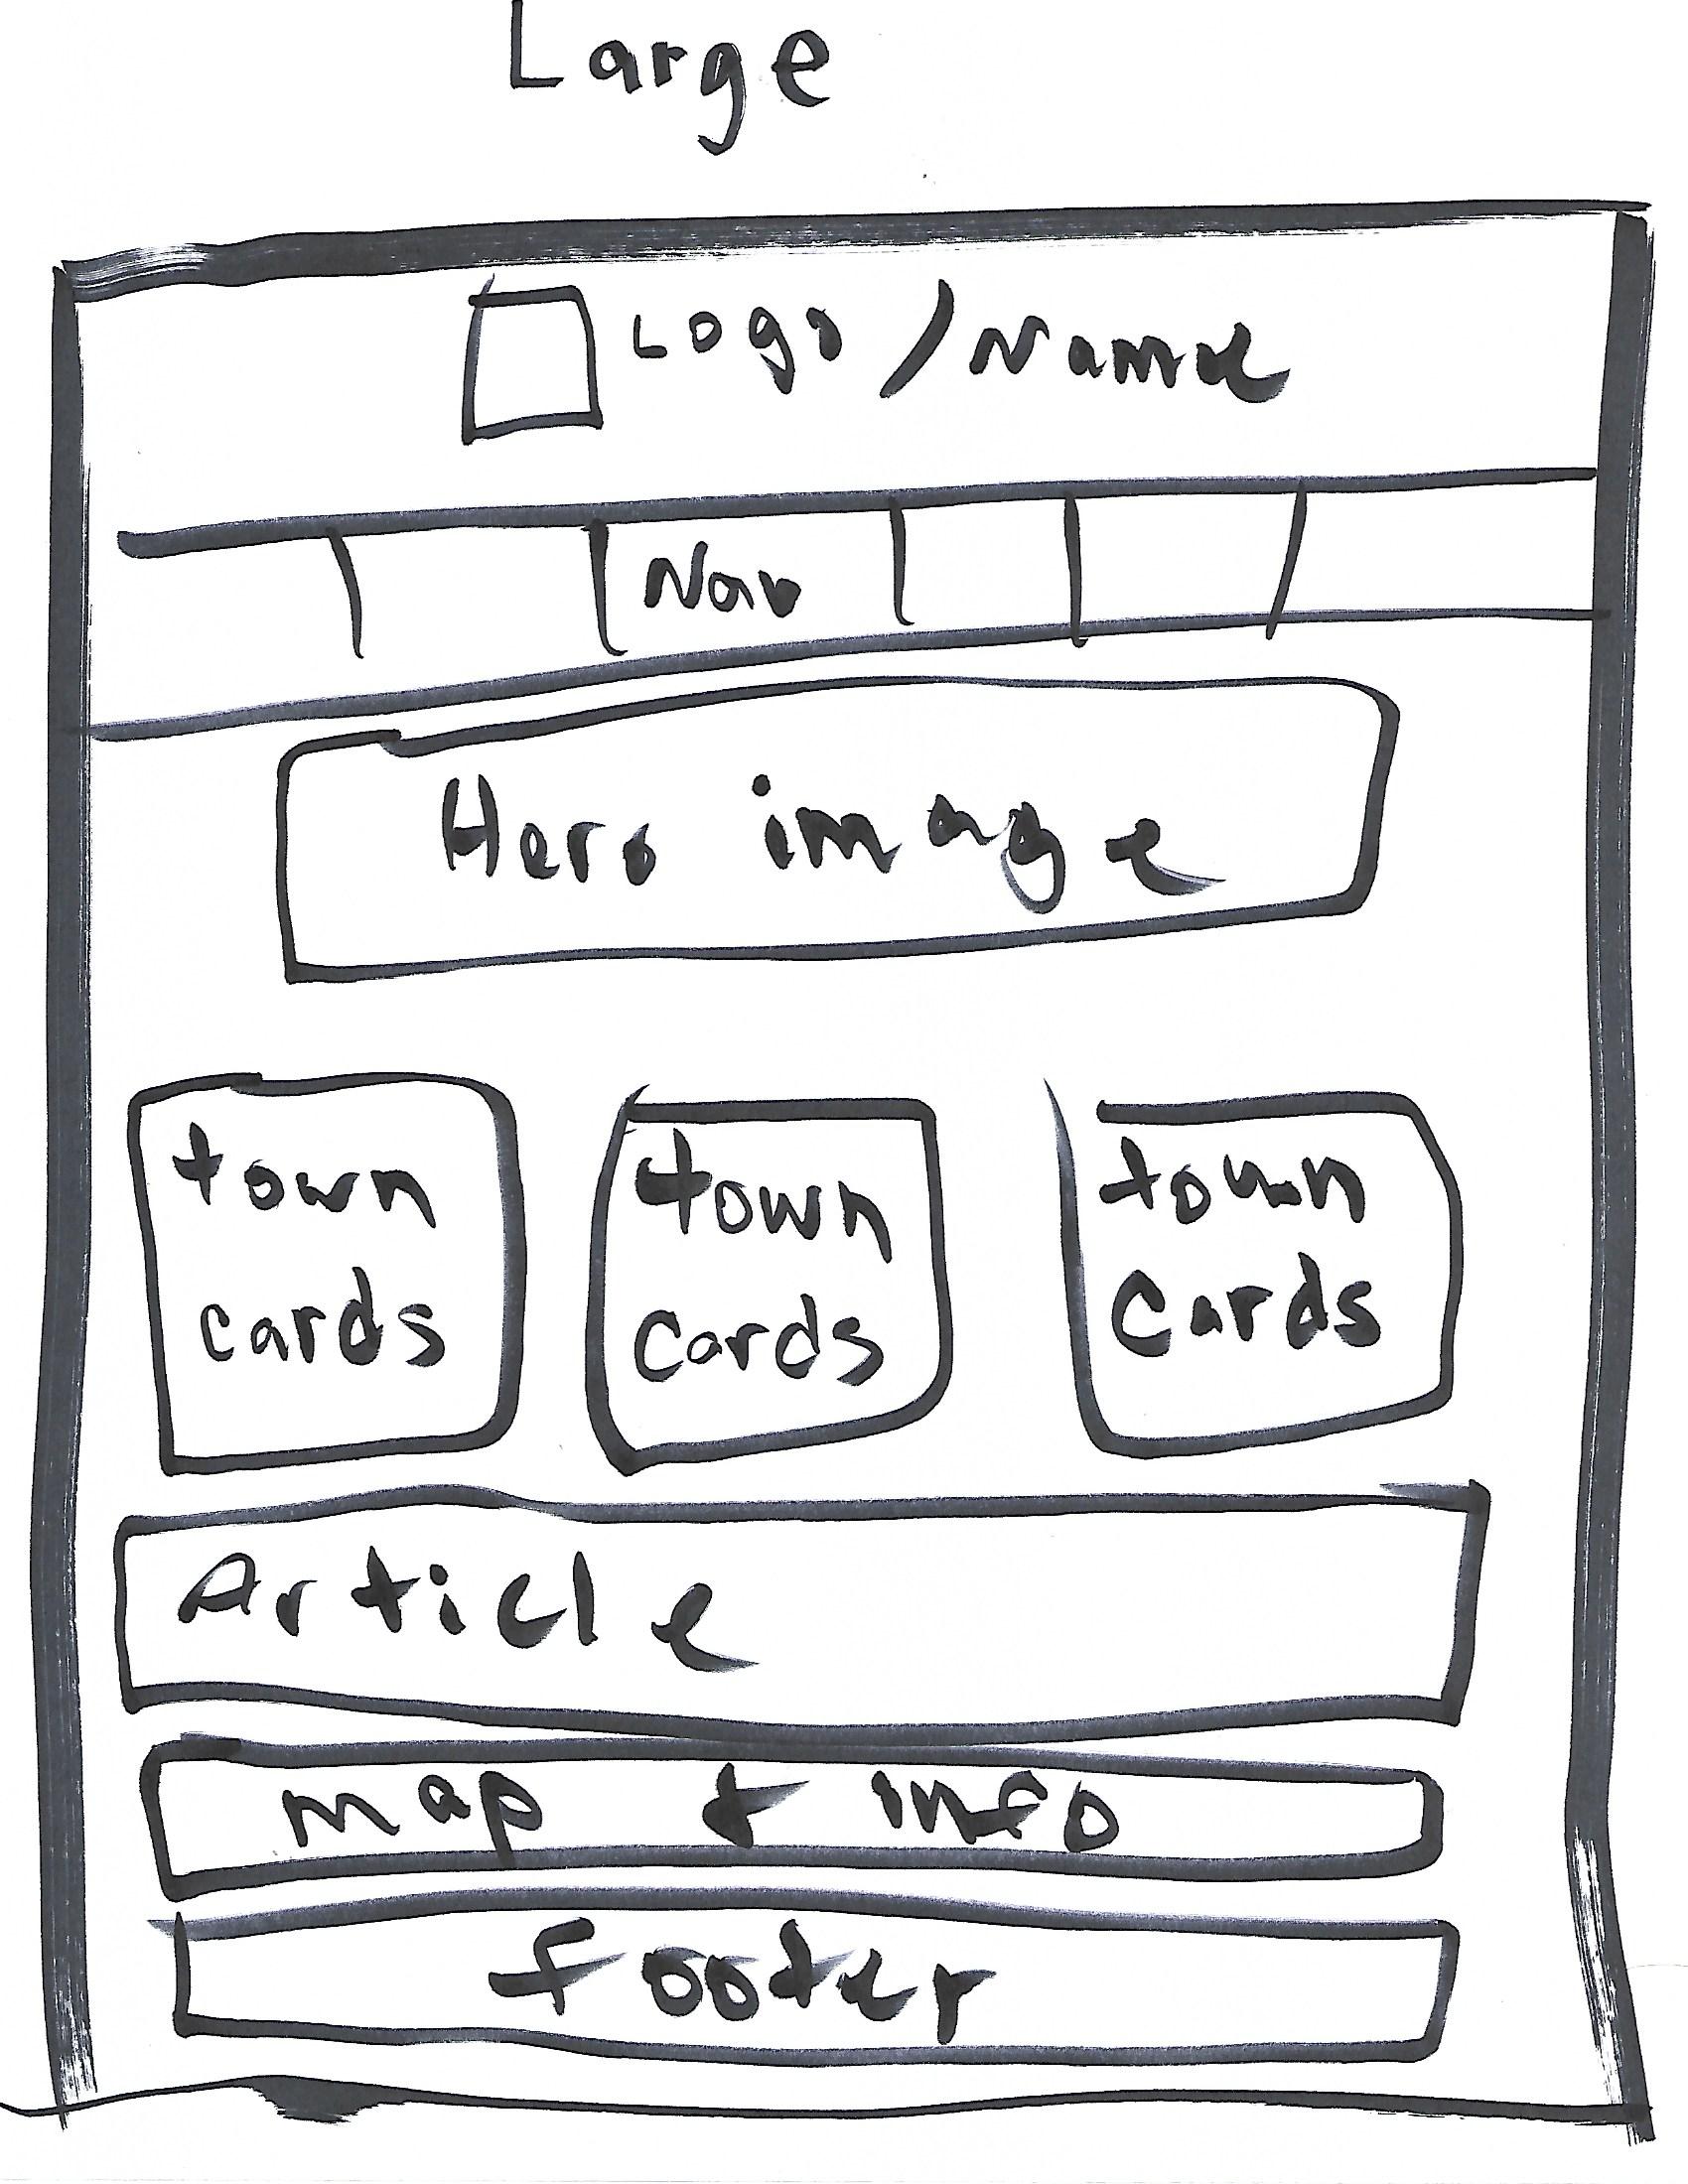 Large
Logo / Name
Nav
Hero image
town town town
cards cards cards
Article
map + info
footer